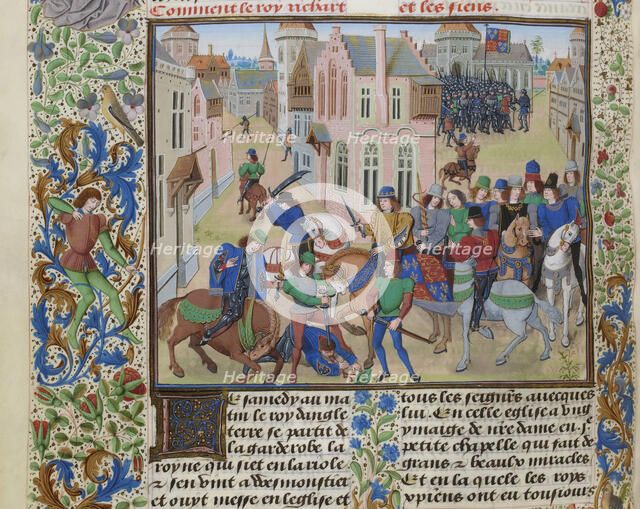 Comment le roy richart et les siens.
E samedy au ma
tin le roy dangle
terre se partit de
la garderobe la
royne qui siet en la riole
⁊ sen vint a Wesmonstier
et ouyt messe en leglise et
tous les seignrs auecques
lui. En celle eglise a vng
ymaige de nre dame en j.
petite chapelle qui fait de
grans ⁊ beaulx miracles.
Et en la quele les roys
ont eu tousiours
Heritage
Heritage
Heritage
Heritage
Heritage
Heritage
Heritage